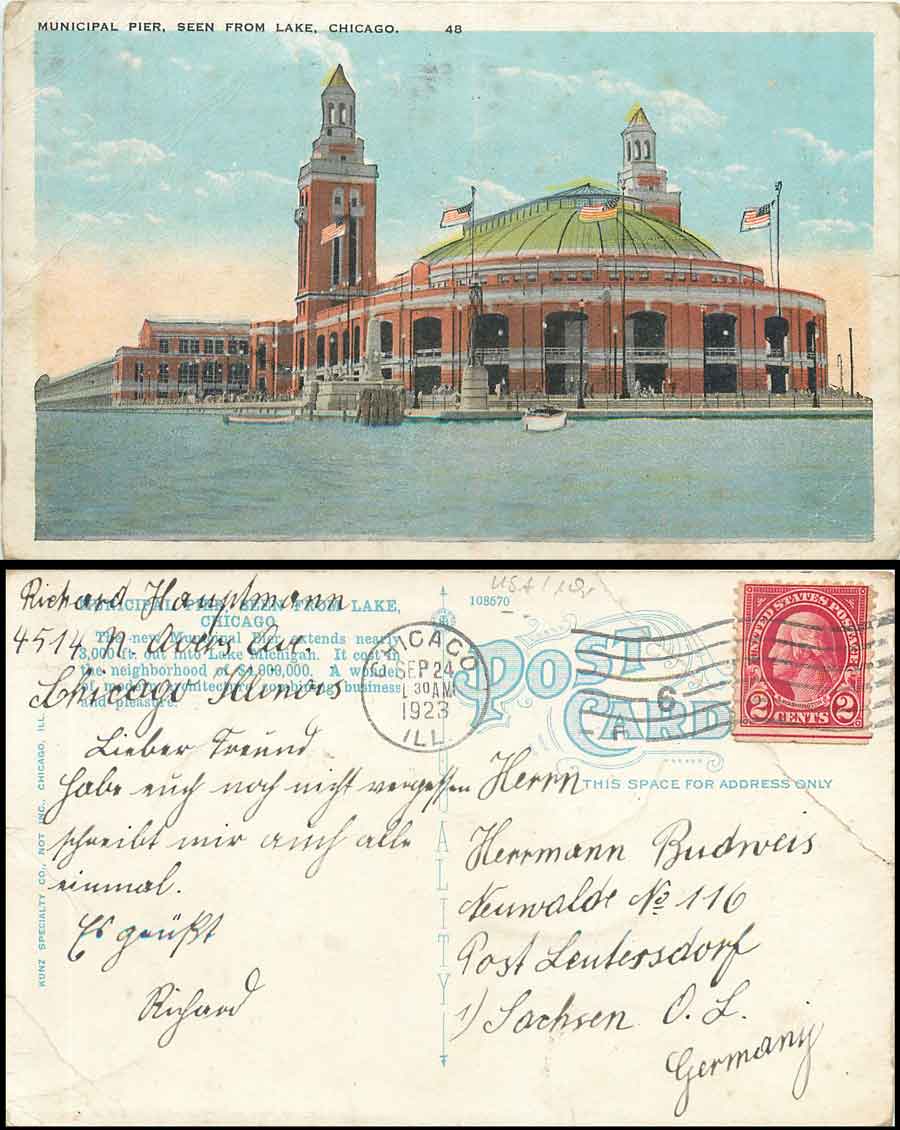 MUNICIPAL PIER, SEEN FROM LAKE, CHICAGO. 48
Richard Hauptmann
4514 N.
Chicago Illinois
MUNICIPAL PIER, SEEN FROM LAKE,
CHICAGO
The new Municipal Pier extends nearly
3,000 ft. into Lake Michigan. It cost in
the neighborhood of $4,000,000. A wonder
of modern architecture, combining business
and pleasure.
Lieber Freund
habe euch noch nicht vergessen
schreibt mir auch alle
einmal.
Es grüßt
Richard
KUNZ SPECIALTY CO., NOT INC., CHICAGO, ILL.
QUALITY
108670
CHICAGO
SEP 24
30 AM
1923
ILL.
6
A
POST
CARD
UNITED STATES POSTAGE
WASHINGTON
2 CENTS 2
THIS SPACE FOR ADDRESS ONLY
Herrn
Herrmann Budweis
Neuwalde № 116
Post Leutersdorf
i/ Sachsen O. L.
Germany